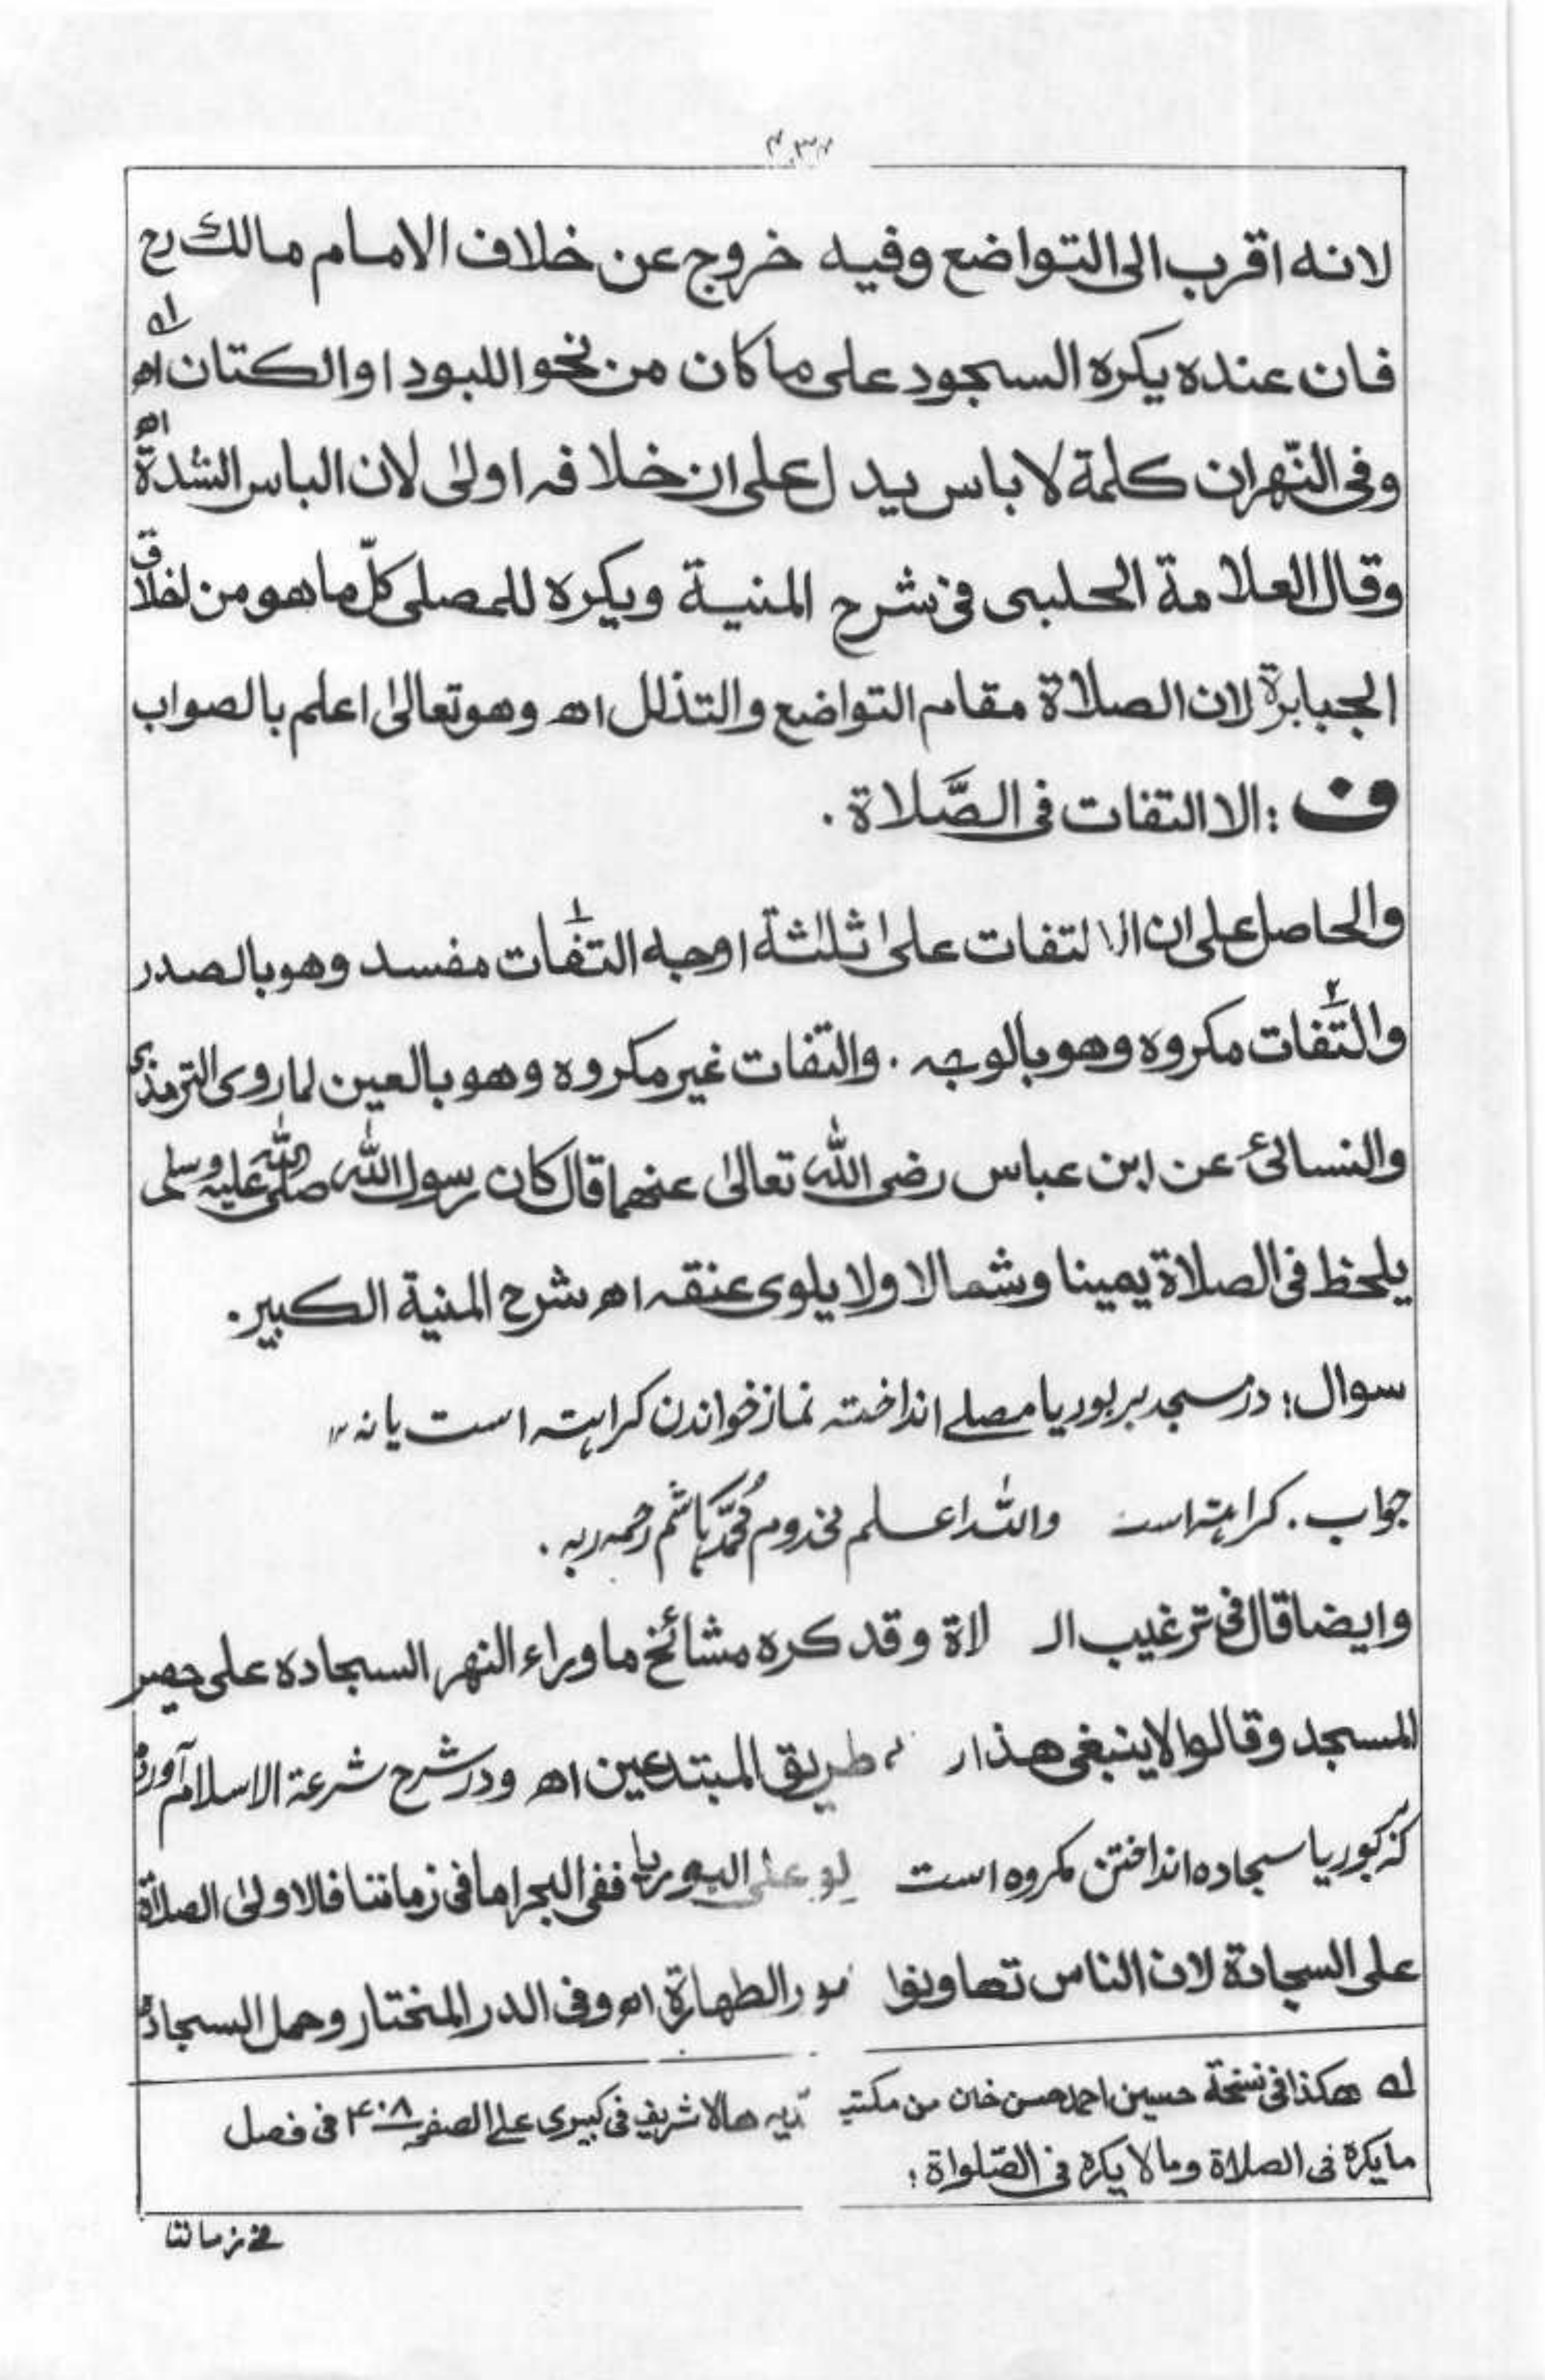 ۴۳۷
لانه اقرب الى التواضع وفيه خروج عن خلاف الامام مالك رح
فان عنده يكره السجود على ما كان من نحو اللبود او الكتان اه له
وفى النّهر ان كلمة لا باس يدل على ان خلافه اولى لان الباس الشدة اه
وقال العلامة الحلبى فى شرح المنية ويكره للمصلى كلّ ما هو من اخلاق
الجبابرة لان الصلاة مقام التواضع والتذلل اه وهو تعالى اعلم بالصواب
ف : الا التفات فى الصَّلاة .
والحاصل على ان الا لتفات على ثلثة اوجه التفات۱ مفسد وهو بالصدر
والتّفات۲ مكروه وهو بالوجه . والتفات غير مكروه وهو بالعين لما روى الترمذى
والنسائى عن ابن عباس رضى الله تعالى عنهما قال كان رسول الله صلى الله عليه وسلم
يلحظ فى الصلاة يمينا وشمالا ولا يلوى عنقه اه شرح المنية الكبير .
سوال : در مسجد بر بوریا مصلے انداختہ نماز خواندن کراہتہ است یا نہ ،،
جواب . کراہتہ است واللہ اعلم مخدوم مُحمَّد ہاشم رحمہ ربہ .
وايضا قال فى ترغيب الـ لاة وقد كره مشائخ ما وراء النهر السجاده على حصير
المسجد وقالوا لا ينبغى هذا طريق المبتدعين اه ودر شرح شرعة الاسلام آورده
کہ بر بوریا سجادہ انداختن مکروہ است على البوريا ففى البحر اما فى زماننا فالاولى الصلاة
على السجادة لان الناس تهاونوا مور الطهارة اه وفى الدر المختار وحمل السجادة
له هكذا فى نسخة حسين احمد حسن خان من مكتبہ دیہ هالا شريف فى كبيرى على الصفحہ ۴۰۸ فى فصل
ما يكره فى الصلاة وما لا يكره فى الصّلواة :
فے زماننا